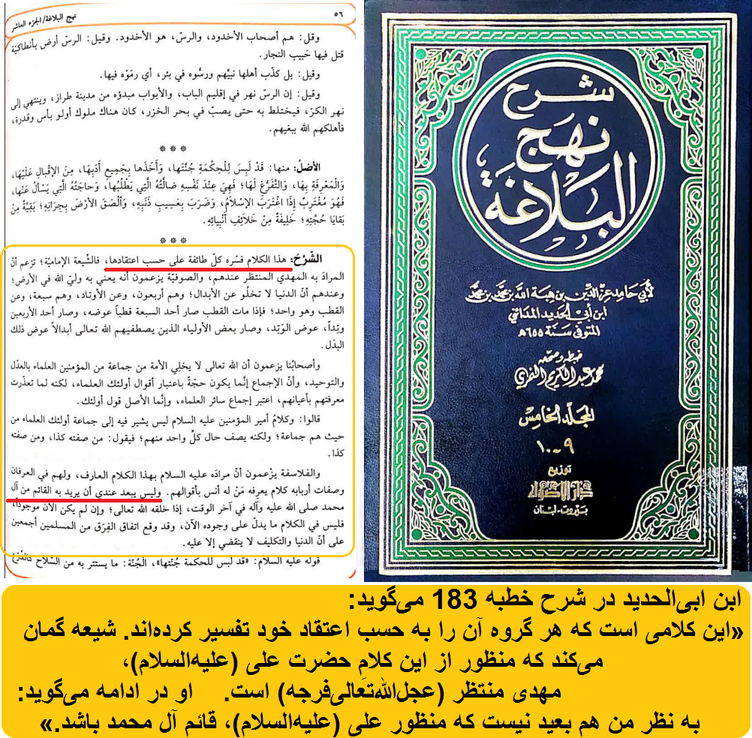 ٥٦
نهج البلاغة/الجزء العاشر
وقل: هم أصحاب الأخدود، والرسّ، هو الأخدود. وقيل: الرسّ أرض بأنطاكيّة
قتل فيها حَبيب النجار.
وقيل: بل كذّب أهلها نبيّهم ورسُوه في بئر، أي رمَوْه فيها.
وقيل: إن الرسّ نهر في إقليم الباب، والأبواب مبدؤه من مدينة طراز، وينتهي إلى
نهر الكرّ، فيختلط به حتى يصبّ في بحر الخزر، كان هناك ملوك أولو بأس وقدرة،
فأهلكهم الله ببغيهم.
* * *
الأصْلُ: منها: قَدْ لَبِسَ لِلْحِكمَةِ جُنَّتَها، وَأَخَذَها بِجَمِيعِ أَدَبِهَا، مِنَ الإِقْبالِ عَلَيْهَا،
وَالْمَعْرِفَةِ بِهَا، وَالتَّفَرُّغِ لَهَا؛ فَهِيَ عِنْدَ نَفْسِهِ ضَالَّتُهُ الَّتِي يَطْلُبُهَا، وَحاجَتُهُ الَّتِي يَسْأَلُ عَنْها،
فَهُوَ مُغْتَرِبٌ إِذَا اغْتَرَبَ الإِسْلَامُ، وَضَرَبَ بِعَسِيبِ ذَنَبِهِ، وَأَلْصَقَ الأَرْضَ بِجِرَانِهِ؛ بَقِيَّةٌ مِنْ
بَقَايا حُجَّتِهِ؛ خَلِيفَةٌ مِنْ خَلائِفِ أَنْبِيائِهِ.
* * *
الشَّرْحُ: هذا الكلام فسّره كلّ طائفة على حسب اعتقادها، فالشّيعة الإماميّة؛ تزعم أنّ
المرادَ به المهديّ المنتظر عندهم، والصوفيّة يزعمون أنه يعني به وليّ الله في الأرض؛
وعندهم أنّ الدنيا لا تخلُو عن الأبدال؛ وهم أربعون، وعن الأوتاد، وهم سبعة، وعن
القطب وهو واحد؛ فإذا مات القطب صار أحد السبعة قطباً عوضه، وصار أحد الأربعين
وتِداً، عوض الوَتِد، وصار بعض الأولياء الذين يصطفيهم الله تعالى أبدالاً عوض ذلك
البدَل.
وأصحابُنا يزعمون أن الله تعالى لا يخلِي الأمة من جماعة من المؤمنين العلماء بالعدْل
والتوحيد، وأنّ الإجماع إنّما يكون حجّةً باعتبار أقوال أولئك العلماء، لكنه لما تعذّرت
معرفتهم بأعيانهم، اعتبر إجماع سائر العلماء، وإنّما الأصل قول أولئك.
قالوا: وكلامُ أمير المؤمنين عليه السلام ليس يشير فيه إلى جماعة أولئك العلماء من
حيث هم جماعة؛ ولكنه يصف حال كلّ واحد منهم؛ فيقول: من صفته كذا، ومن صفته
كذا.
والفلاسفة يزعُمون أنّ مرادَه عليه السلام بهذا الكلام العارف، ولهم في العرفان
وصفات أربابه كلام يعرِفه مَنْ له أنس بأقوالهم. وليس يبعد عندي أن يريد به القائم من آل
محمد صلى الله عليه وآله في آخر الوقت، إذا خلقه الله تعالى؛ وإن لم يكن الآن موجوداً؛
فليس في الكلام ما يدلّ على وجوده الآن، وقد وقع اتفاق الفِرَق من المسلمين أجمعين
على أنّ الدنيا والتكليف لا ينقضي إلا عليه.
قوله عليه السلام: «قد لبس للحكمة جُنّتها»، الجُنّة: ما يستتر به من السِّلاح كالدِّرْع
شرح
نهج
البلاغة
لأبي حامد عز الدين بن هبة الله بن محمد بن محمد
ابن أبي الحديد المدائني
المتوفى سنة ٦٥٥هـ
ضبطه وصححه
محمد عبد الكريم النمري
المجلد الخامس
٩-١٠
توزيع
دار الأضواء
بيروت - لبنان
ابن ابی‌الحدید در شرح خطبه 183 می‌گوید:
«این کلامی است که هر گروه آن را به حسب اعتقاد خود تفسیر کرده‌اند. شیعه گمان
می‌کند که منظور از این کلامِ حضرت علی (علیه‌السلام)،
مهدی منتظر (عجل‌الله‌تعالی‌فرجه) است. او در ادامه می‌گوید:
به نظر من هم بعید نیست که منظور علی (علیه‌السلام)، قائم آل محمد باشد.»